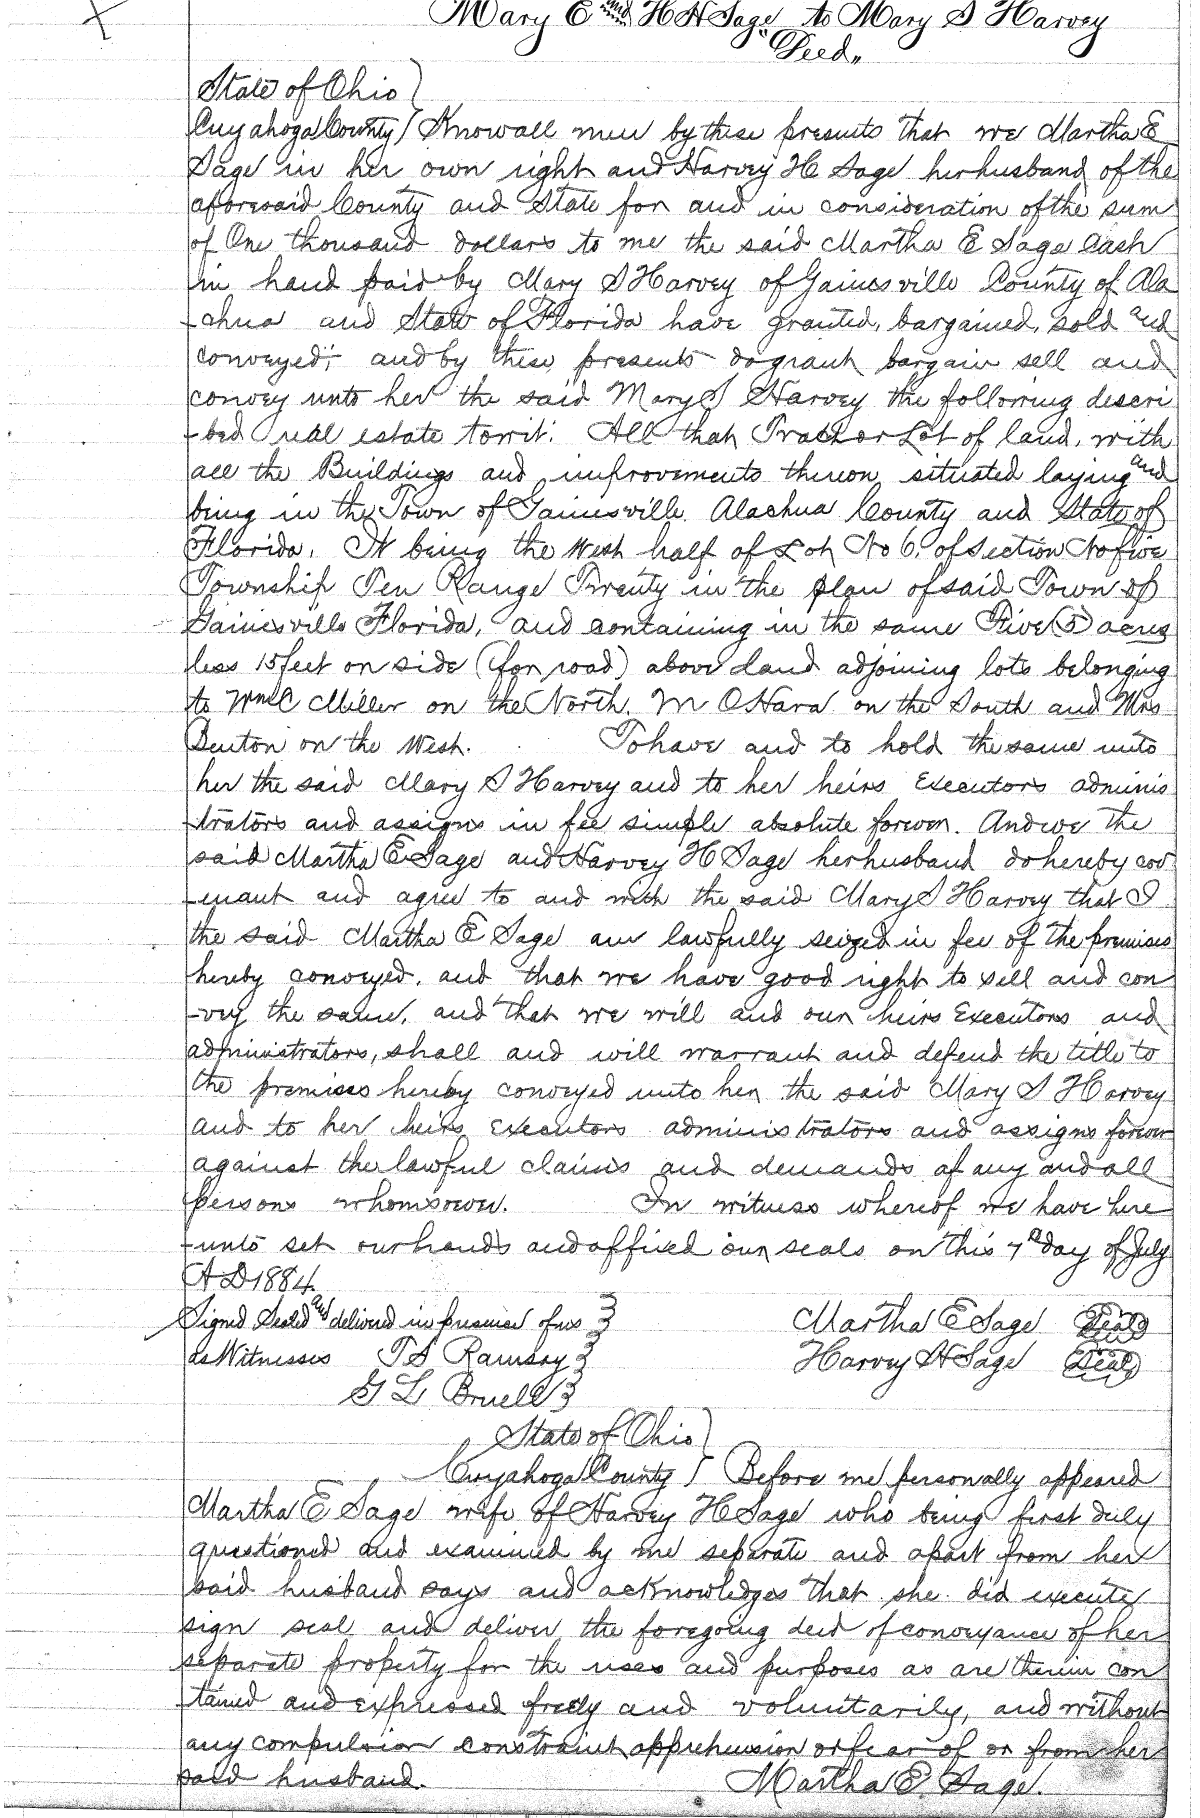 Mary E and H H Sage to Mary S Harvey
"Deed"
State of Ohio )
Cuyahoga County ) Know all men by these presents that we Martha E
Sage in her own right and Harvey H Sage her husband of the
aforesaid County and State for and in consideration of the sum
of One thousand dollars to me the said Martha E Sage Cash
in hand paid by Mary S Harvey of Gainesville County of Ala
-chua and State of Florida have granted, bargained, sold and
conveyed; and by these presents do grant bargain sell and
convey unto her the said Mary S Harvey the following descri
-bed real estate towit: All that Tract or Lot of land, with
all the Buildings and improvements thereon situated laying and
being in the Town of Gainesville Alachua County and State of
Florida. It being the West half of Lot No 6. of Section No five
Township Ten Range Twenty in the plan of said Town of
Gainesville Florida, and containing in the same Five (5) acres
less 15 feet on side (for road) above land adjoining lots belonging
to Wm C Miller on the North, M OHara on the South and Mrs
Benton on the West. To have and to hold the same unto
her the said Mary S Harvey and to her heirs Executors adminis
-trators and assigns in fee simple absolute forever. And we the
said Martha E Sage and Harvey H Sage her husband do hereby cov
-enant and agree to and with the said Mary S Harvey that I
the said Martha E Sage am lawfully seized in fee of the premises
hereby conveyed, and that we have good right to sell and con
-vey the same, and that we will and our heirs Executors and
administrators, shall and will warrant and defend the title to
the premises hereby conveyed unto her the said Mary S Harvey
and to her heirs executors administrators and assigns forever
against the lawful claims and demands of any and all
persons whomsoever. In witness whereof we have here
-unto set our hands and affixed our seals on this 7th day of July
A D 1884.
Signed Sealed and delivered in presence of us } Martha E Sage (Seal)
as Witnesses T S Ramsay } Harvey H Sage (Seal)
G L Bruell }
State of Ohio )
Cuyahoga County ) Before me personally appeared
Martha E Sage wife of Harvey H Sage who being first duly
questioned and examined by me separate and apart from her
said husband says and acknowledges that she did execute
sign seal and deliver the foregoing deed of conveyance of her
separate property for the uses and purposes as are therein con
-tained and expressed freely and voluntarily, and without
any compulsion constraint apprehension or fear of or from her
said husband. Martha E. Sage.